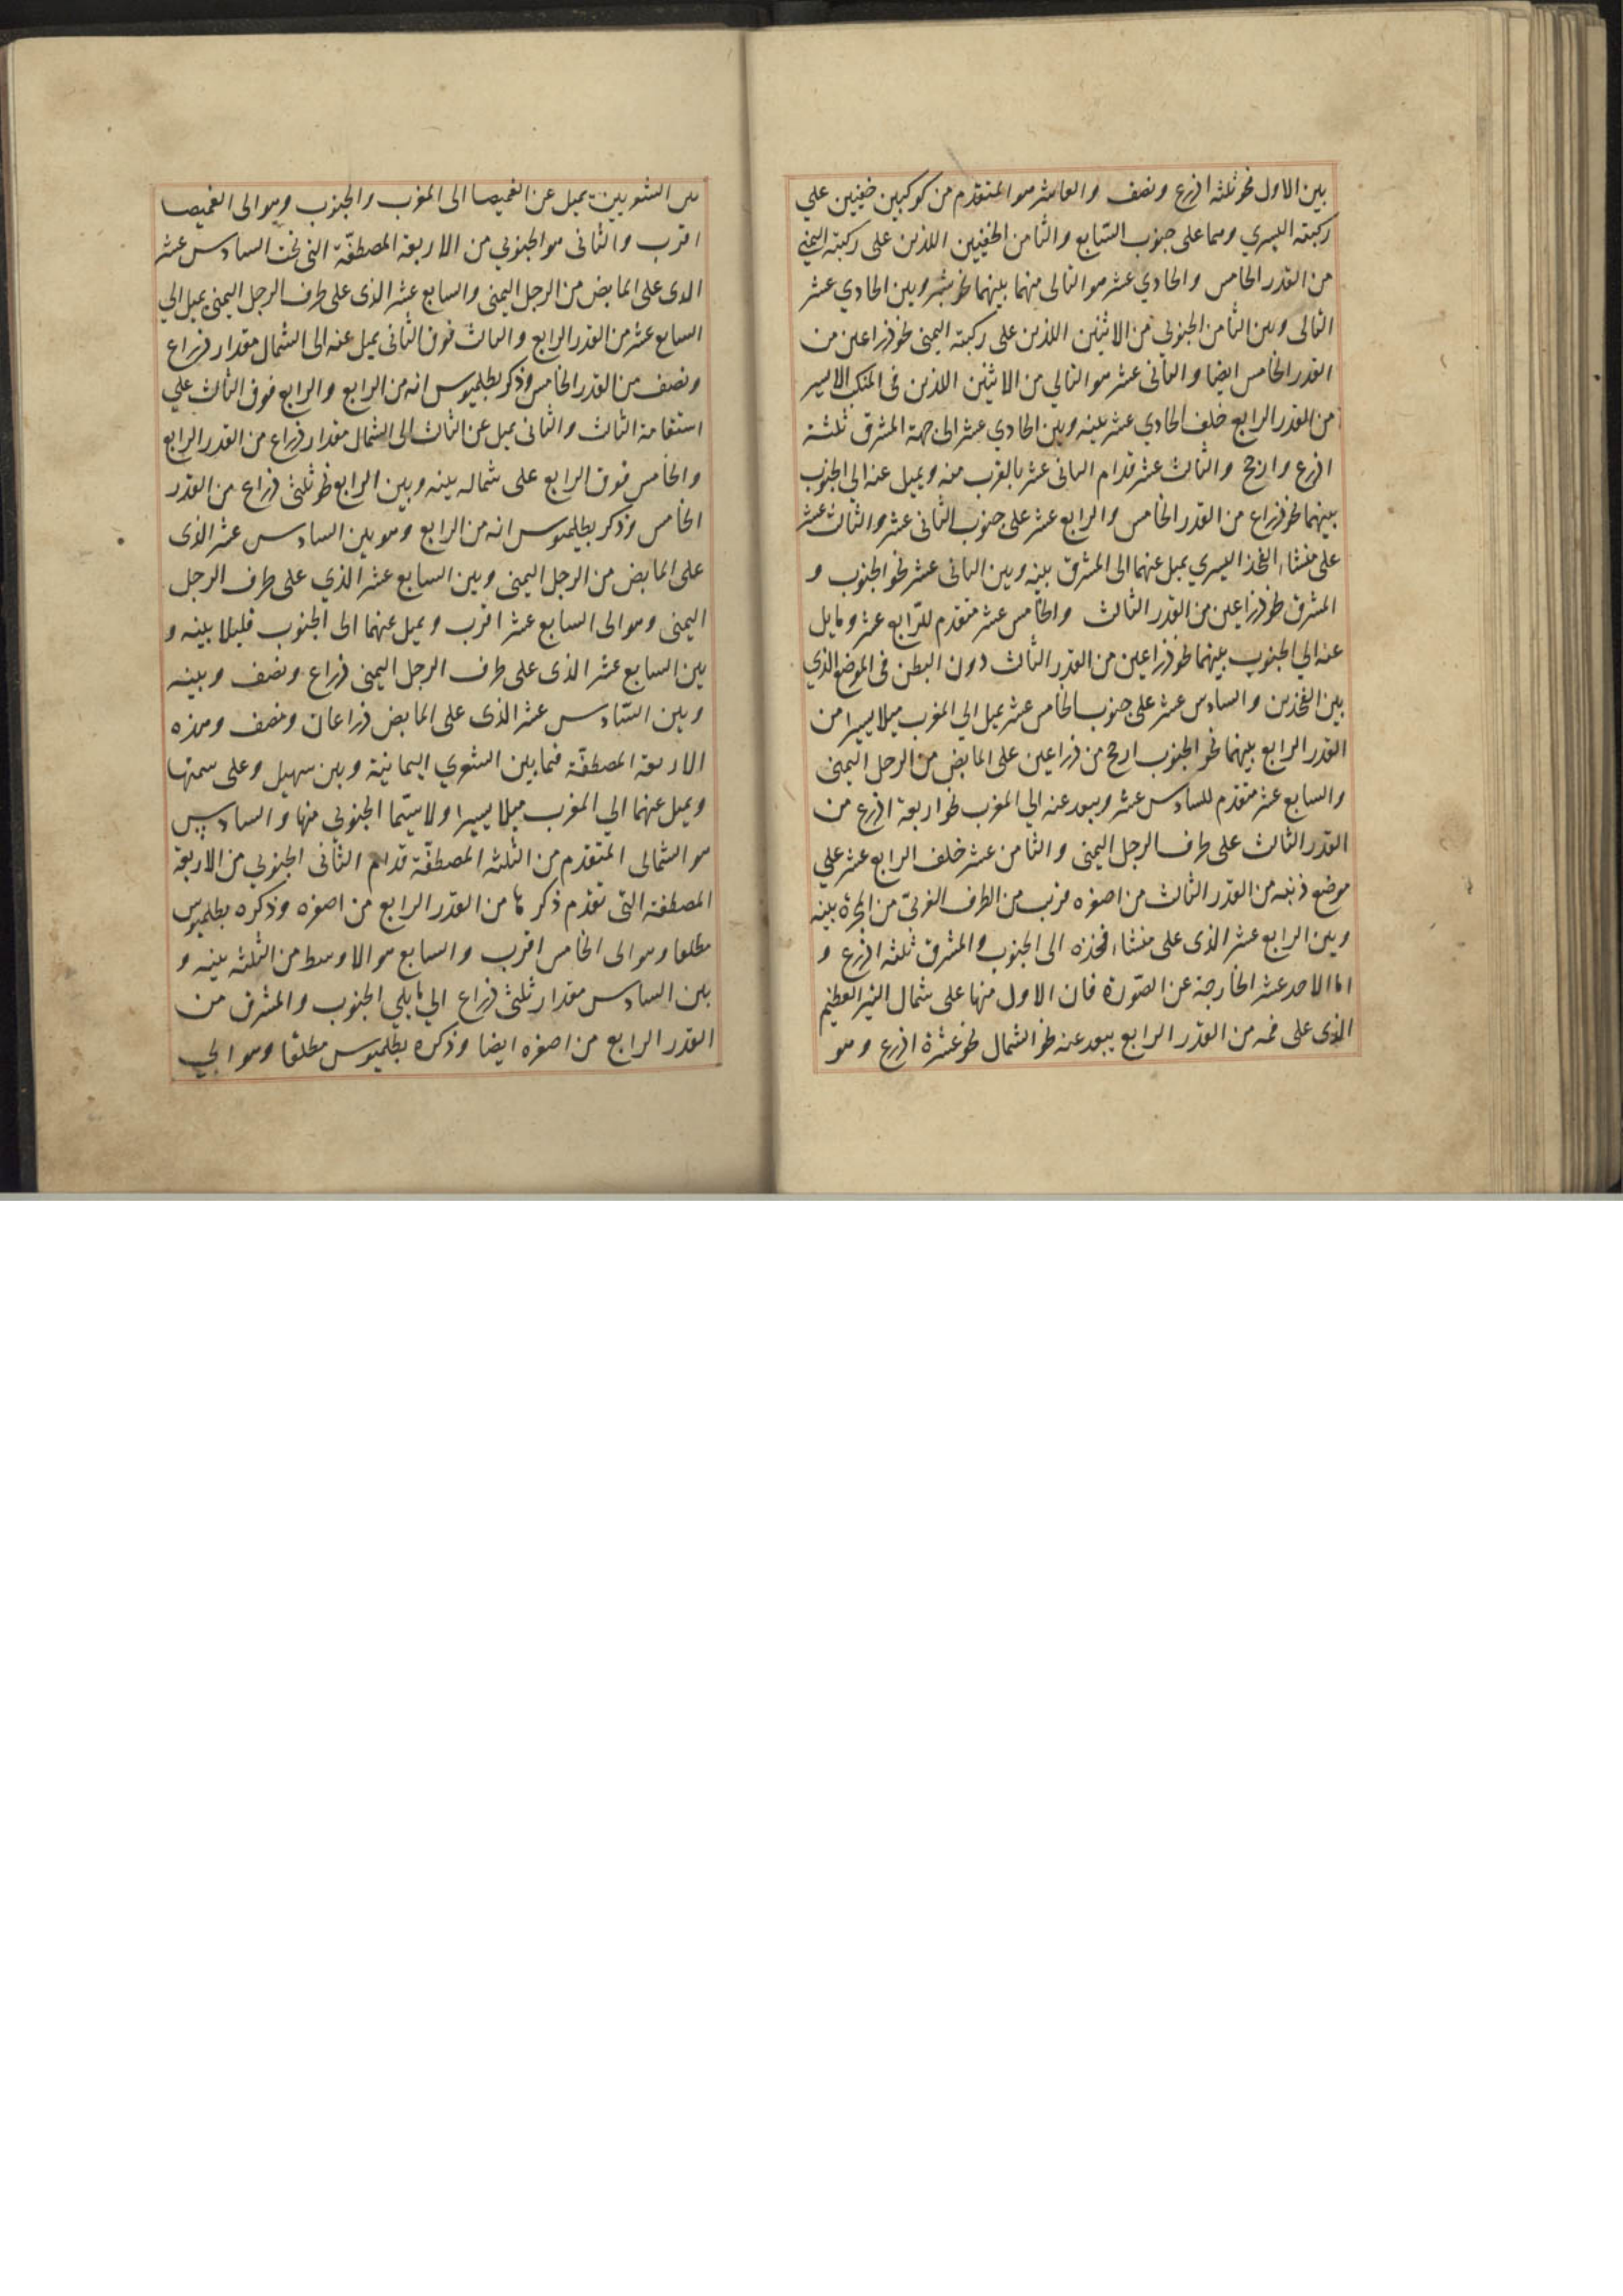 بين الاول نحو ثلثه اذرع ونصف والعاشر هو المتقدم من كوكبين خفيين علي
ركبته اليسري وهما على جنوب السّابع والثامن الخفيين اللذين على ركبته اليمني
من القدر الخامس والحادي عشر هو التالى منهما بينهما نحو شبر وبين الحادي عشر
التالى وبين الثامن الجنوبي من الاثنين اللذين على ركبته اليمنى نحو ذراعين من
القدر الخامس ايضا والثانى عشر هو التالي من الاثنين اللذين فى المنكب الايسر
من القدر الرابع خلف الحادي عشر بينه وبين الحادي عشر الى جهة المشرق ثلثة
اذرع وارجح والثالث عشر قدام الثانى عشر بالقرب منه ويميل عنه الي الجنوب
بينهما نحو ذراع من القدر الخامس والرابع عشر على جنوب الثانى عشر والثالث عشر
على منشاء الفخذ اليسري يميل عنهما الى المشرق بينه وبين الثانى عشر نحو الجنوب و
المشرق نحو ذراعين من القدر الثالث والخامس عشر متقدم للرابع عشر ومايل
عنه الي الجنوب بينهما نحو ذراعين من القدر الثالث دون البطن فى الموضع الذي
بين الفخذين والسادس عشر على جنوب الخامس عشر يميل الي المغرب ميلا يسيرا من
القدر الرابع بينهما نحو الجنوب ارجح من ذراعين على المابض من الرجل اليمنى
والسابع عشر متقدم للسادس عشر ويبعد عنه الي المغرب نحو اربعة اذرع من
القدر الثالث على طرف الرجل اليمنى والثامن عشر خلف الرابع عشر علي
موضع ذنبه من القدر الثالث من اصغره قرب من الطرف الغربىّ من المجرة بينه
وبين الرابع عشر الذى على منشاء فخذه الى الجنوب والمشرق ثلثه اذرع و
اما الاحد عشر الخارجة عن الصّورة فان الاول منها على شمال النير العظيم
الذى على فمه من القدر الرابع يبعد عنه نحو الشمال نحو عشرة اذرع وهو
بين الشعريين يميل عن الغميصا الى المغرب والجنوب وهو الى الغميصا
اقرب والثانى هو الجنوبي من الاربعة المصطفّة التى تحت السادس عشر
الذى على المابض من الرجل اليمنى والسابع عشر الذى على طرف الرجل اليمنى يميل الي
السابع عشر من القدر الرابع والثالث فوق الثانى يميل عنه الى الشمال مقدار ذراع
ونصف من القدر الخامس وذكر بطلميوس انه من الرابع والرابع فوق الثالث علي
استقامة الثالث والثانى يميل عن الثالث الى الشمال مقدار ذراع من القدر الرابع
والخامس فوق الرابع على شماله بينه وبين الرابع نحو ثلثى ذراع من القدر
الخامس وذكر بطلميوس انه من الرابع وهو بين السادس عشر الذى
على المابض من الرجل اليمنى وبين السابع عشر الذي على طرف الرجل
اليمنى وهو الى السابع عشر اقرب ويميل عنهما الى الجنوب قليلا بينه و
بين السابع عشر الذى على طرف الرجل اليمنى ذراع ونصف وبينه
وبين السّادس عشر الذى على المابض ذراعان ونصف وهذه
الاربعة المصطفّة فيما بين الشعري اليمانية وبين سهيل وعلى سمتها
ويميل عنهما الي المغرب ميلا يسيرا ولا سيّما الجنوبي منها والسادس
هو الشمالى المتقدم من الثلثه المصطفّة قدام الثانى الجنوبي من الاربعة
المصطفة التى تقدم ذكرها من القدر الرابع من اصغره وذكره بطلميوس
مطلقا وهو الى الخامس اقرب والسابع هو الاوسط من الثلثه بينه و
بين السادس مقدار ثلثى ذراع الي ما يلي الجنوب والمشرق من
القدر الرابع من اصغره ايضا وذكره بطلميوس مطلقا وهو الي